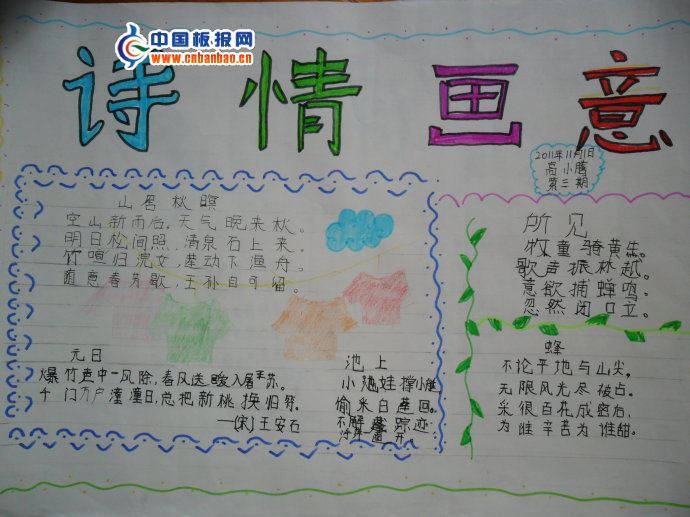 中国板报网
www.cnbanbao.cn
诗情画意
2011年11月1日
高小腾
第三期
山居秋暝
空山新雨后。天气晚来秋。
明日松间照,清泉石上来。
竹喧归浣女,莲动下渔舟。
随意春芳歇,王孙自可留。
元日
爆竹声中一风除,春风送暖入屠苏。
千门万户瞳瞳日,总把新桃换旧符。
—(宋)王安石
池上
小娃撑小艇
偷采白莲回。
不解藏踪迹
浮萍一道开。
所见
牧童骑黄牛。
歌声振林越。
意欲捕蝉鸣。
忽然闭口立。
蜂
不论平地与山尖,
无限风光尽被占。
采得百花成蜜后,
为谁辛苦为谁甜。